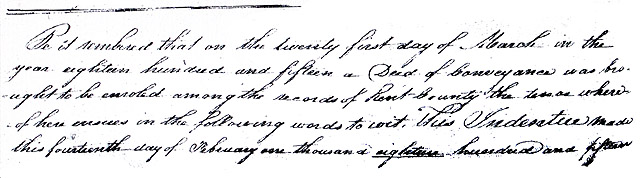 Be it rembered that on the twenty first day of March in the
year eighteen hundred and fifteen a Deed of Conveyance was bro-
ught to be enroled among the records of Kent County the tenor where
-of here ensues in the following words to wit. This Indenture made
this fourteenth day of February one thousand eighteen hundred and fifteen